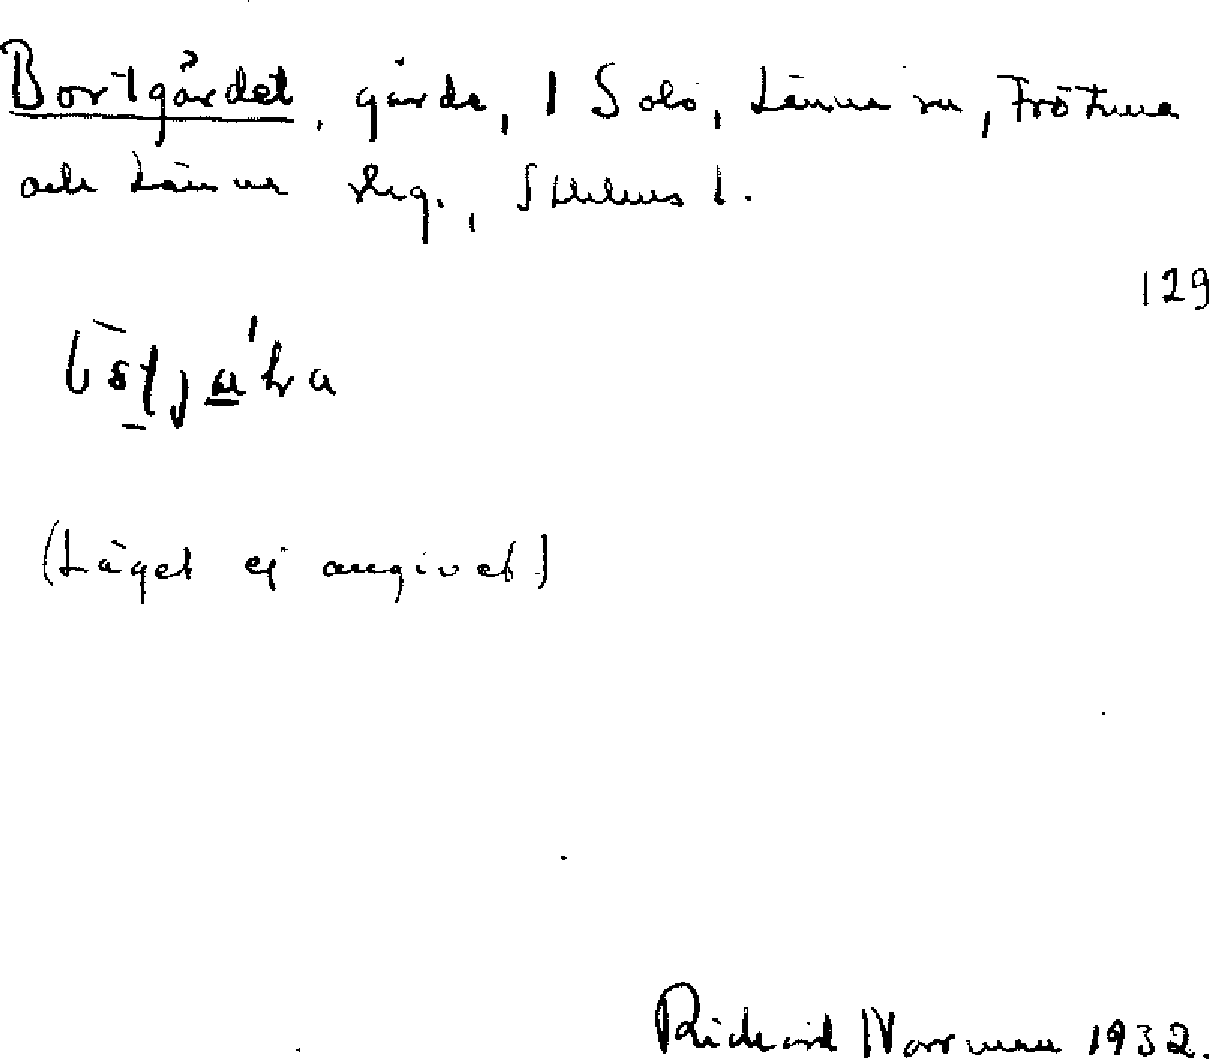 Bortgärdet, gärde, 1 Solö, Länna sn, Frötuna
och Länna skg., Sthlms l.
129
(Läget ej angivet)
Richard Norrman 1932.